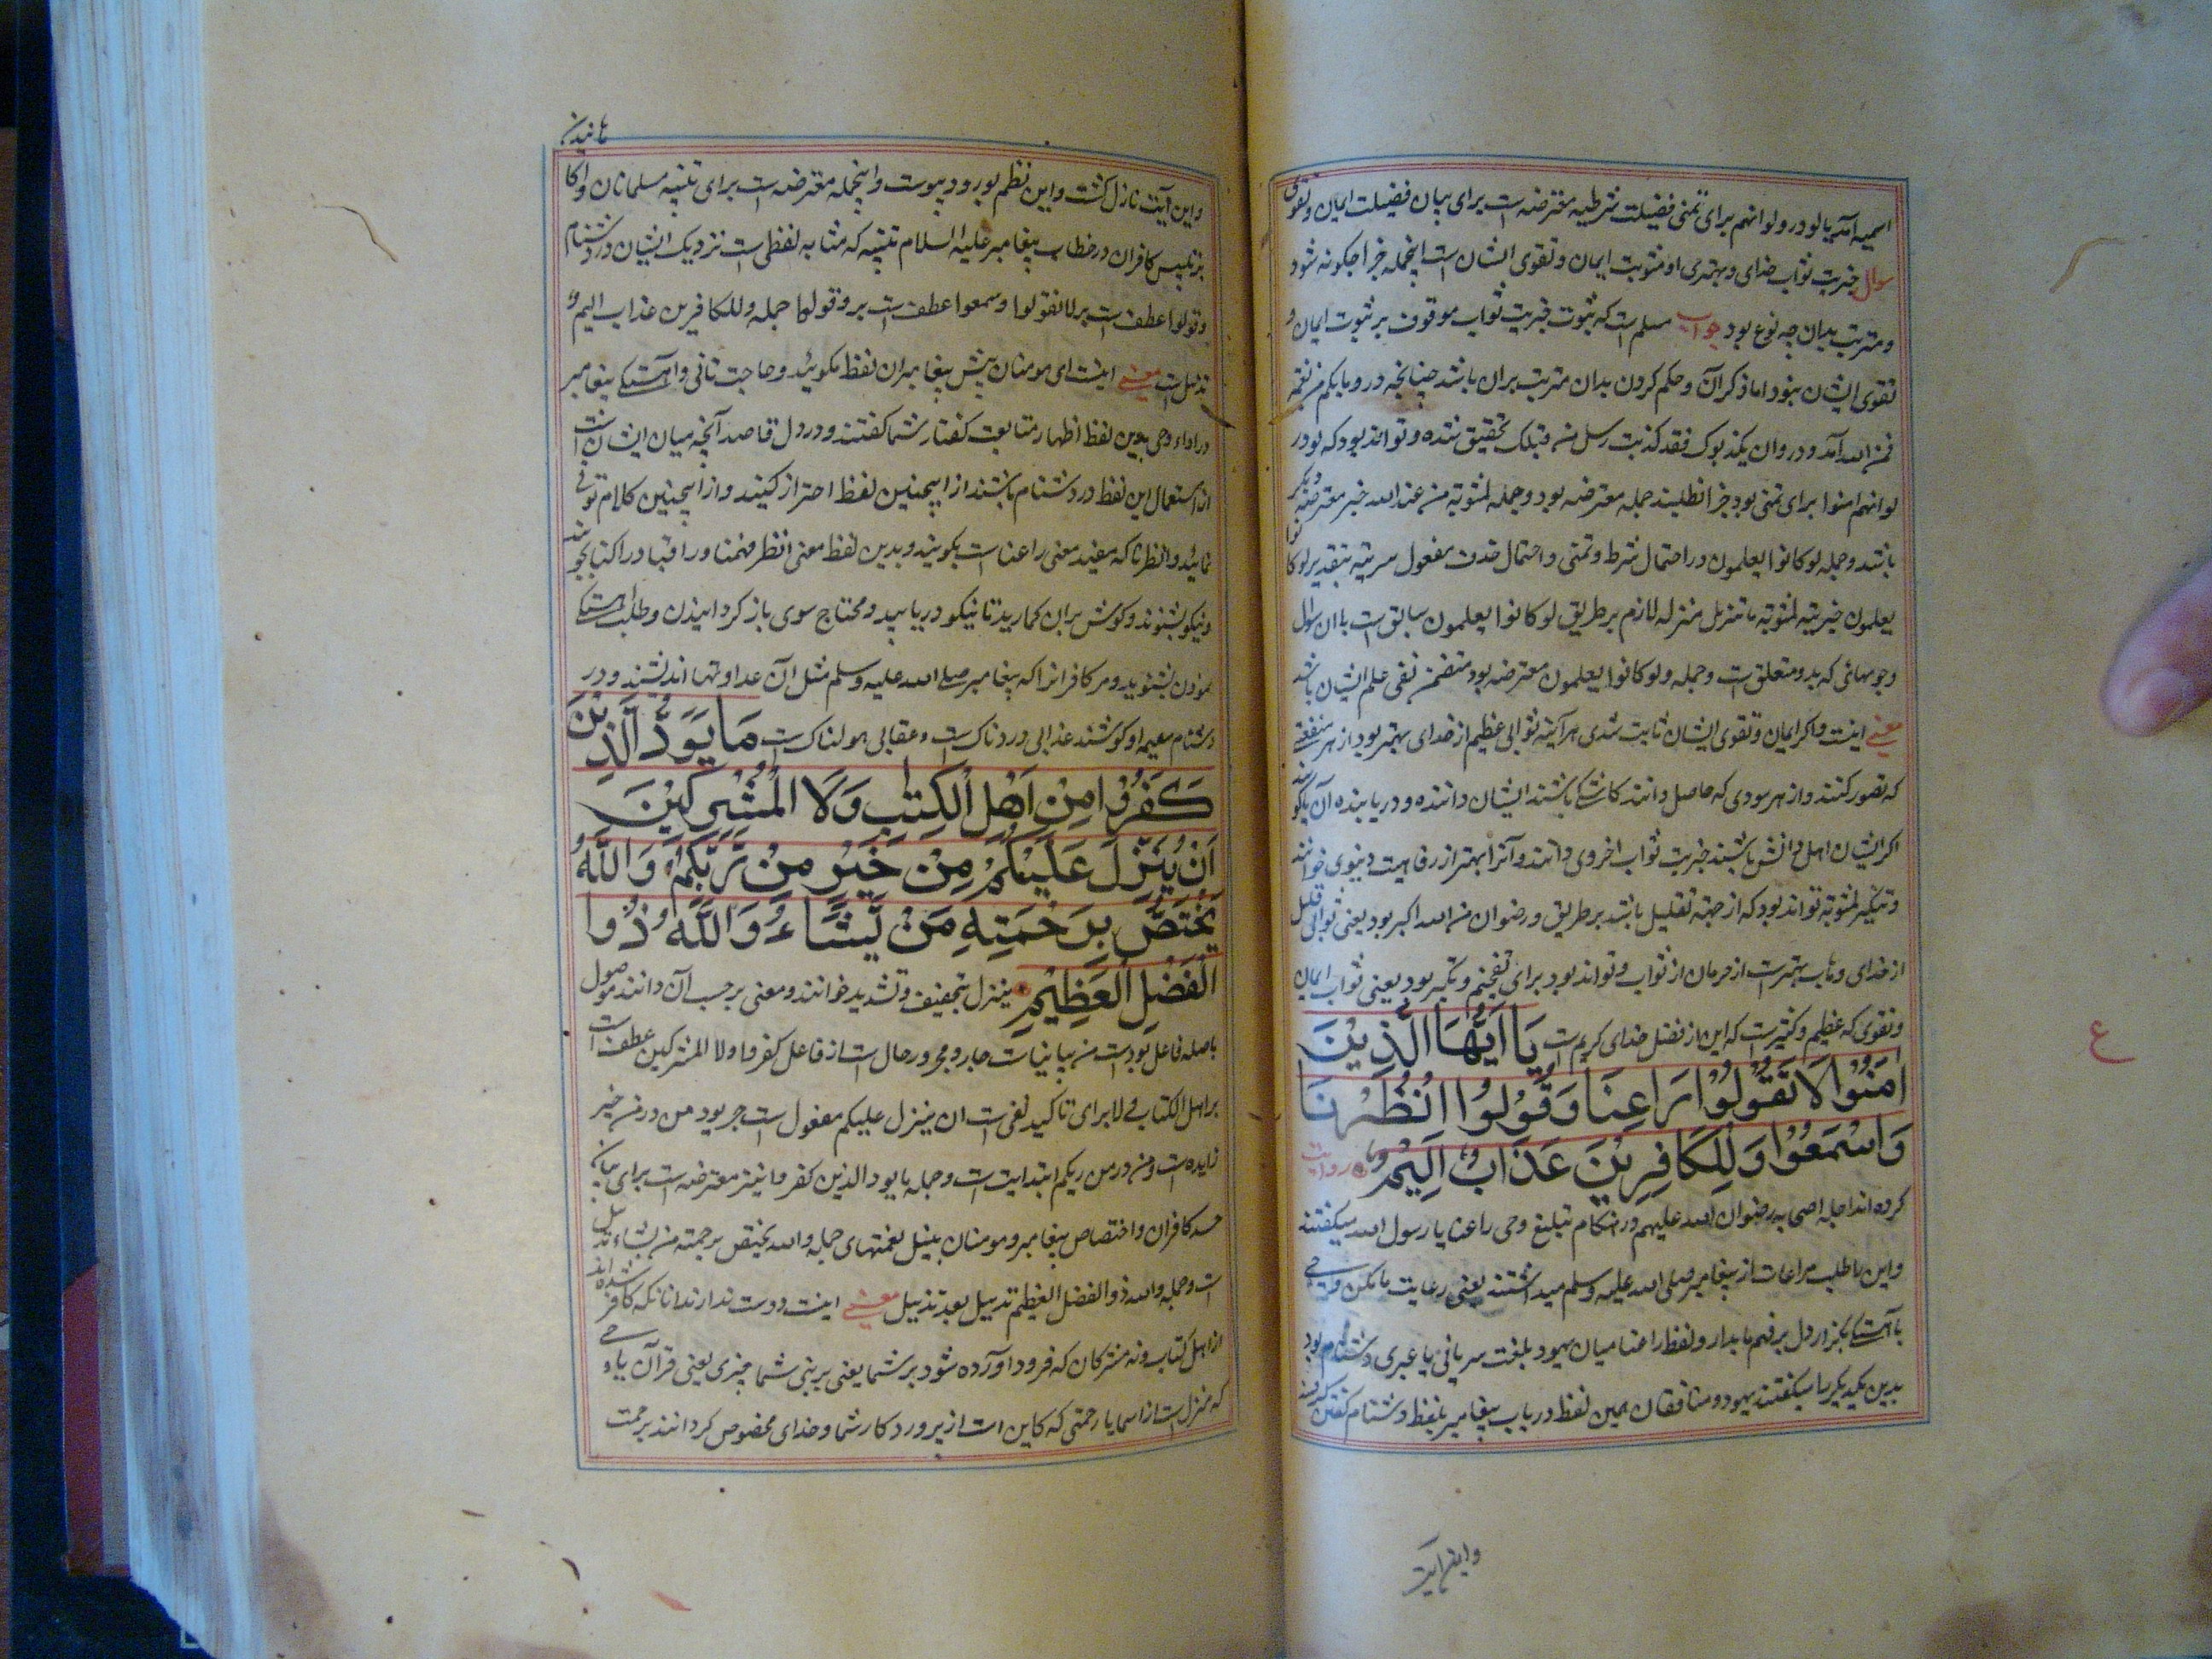 اسمیه آمد یا لو در ولو انهم برای تمنی فضیلت شرطیه معترضه است برای بیان فضیلت ایمان و تقوی
سوال خیریت ثواب خدای و بهتری او مثوبت ایمان و تقوی ایشان است اینجمله جزا چگونه شود
و مترتب بدان چه نوع بود جواب مسلم است که ثبوت خیریت ثواب موقوف بر ثبوت ایمان و
تقوی ایشان نبود اما ذکر آن و حکم کردن بدان مترتب بران باشد چنانچه در و ما بکم من نعمة
فمن الله آمد و در وان یکذبوک فقد کذبت رسل من قبلک تحقیق شده و تواند بود که لو در
لو انهم امنوا برای تمنی بود جزا نطلبند جمله معترضه بود و جمله لمثوبة من عند الله خیر معترضه دیگر
باشد و جمله لو کانوا یعلمون در احتمال شرط و تمنی و احتمال حذف مفعول بتقدیر لو کانوا
یعلمون خیریة لمثوبة یا تنزیل منزله لازم بر طریق لو کانوا یعلمون سابق است با ان سوال
و جوابهائی که بدو متعلق است و جمله ولو کانوا یعلمون معترضه بود متضمن نفی علم ایشان باشد
معنی اینست و اکر ایمان و تقوی ایشان ثابت شدی هر آئینه ثوابی عظیم از خدای بهتر بود از هر منفعتی
که تصور کنند و از هر سودی که حاصل دانند کاشکی باشند ایشان داننده و دریابنده آن
اکر ایشان اهل دانش باشند خیریت ثواب اخروی دانند و آنرا بهتر از رفاهیت دنیوی خوانند
و تنکیر لمثوبة تواند بود که از جهة تقلیل باشد بر طریق و رضوان من الله اکبر بود یعنی ثوابی قلیل
از خدای وهاب بهتر است از حرمان از ثواب و تواند بود برای تفخیم و تکثیر بود یعنی ثواب ایمان
و تقوی که عظیم و کثیر است که این از فضل خدای کریم است يَا اَيُّهَا الَّذِيْنَ
اٰمَنُوْا لَا تَقُوْلُوْا رَاعِنَا وَقُوْلُوا انْظُرْنَا
وَاسْمَعُوْا وَلِلْكَافِرِيْنَ عَذَابٌ اَلِيْمٌ روایت
کرده اند اجله اصحابه رضوان الله علیهم در هنکام تبلیغ وحی راعنا یا رسول الله میکفتند
و این با طلب مراعات از پیغامبر صلی الله علیه وسلم میداشتند یعنی رعایت ما بکن و وحی
بآهستکی بکزار دل بر فهم ما بدار و لفظ راعنا میان یهود بلغت سریانی یا عبری دشنام بود
بدین یکدیکر را میکفتند یهود و منافقان همین لفظ در باب پیغامبر بلفظ دشنام کفتن کرفتند
واین آیت
و این آیت نازل کشت و این نظم بورود پیوست و اینجمله معترضه است برای تنبیه مسلمانان و آکا
بر تلبیس کافران در خطاب پیغامبر علیه السلام تنبیه که مشابه لفظی است نزدیک ایشان در دشنام
و قولوا عطف است بر لا تقولوا و سمعوا عطف است بر و قولوا جمله وللکافرین عذاب الیم
تذییل است معنی اینست ای مومنان پیش پیغامبران لفظ مکوئید و حاجت تانی و آهستکی پیغامبر
در اداء وحی بدین لفظ اظهار متابعت کفتار شما کفتند و در دل قاصد آنچه میان ایشان است
از استعمال این لفظ در دشنام باشند از اینچنین لفظ احتراز کنید و از اینچنین کلام توقی
نمائید و انظرنا که مفید معنی راعنا است بکویند و بدین لفظ معنی انظر فهمنا و راقبنا در
و نیکو بشنوند و کوش بران کمارید تا نیکو دریابید و محتاج سوی باز کردانیدن و طلب آهستکی
نمودن نشوید و مر کافرانرا که پیغامبر صلی الله علیه وسلم مثل آن عداوتها اندیشند و در
دشنام او کوشند عذابی دردناک است و عقابی هولناک است مَا يَوَدُّ الَّذِيْنَ
كَفَرُوْا مِنْ اَهْلِ الْكِتٰبِ وَلَا الْمُشْرِكِيْنَ
اَنْ يُنَزَّلَ عَلَيْكُمْ مِنْ خَيْرٍ مِنْ رَّبِّكُمْ وَاللّٰهُ
يَخْتَصُّ بِرَحْمَتِهٖ مَنْ يَّشَاءُ وَاللّٰهُ ذُوا
الْفَضْلِ الْعَظِيْمِ ینزل بتخفیف و تشدید خوانند و معنی بر حسب آن دانند موصول
باصله فاعل یود است من بیانیات جار و مجرور حال است از فاعل کفروا ولا المشرکین عطف است
بر اهل الکتاب و لا برای تاکید نفی است ان ینزل علیکم مفعول است یود من در من خیر
زایده است و من در من ربکم ابتدایت است و جمله ما یود الذین کفروا نیز معترضه است برای بیان
حسد کافران و اختصاص پیغامبر و مومنان بنیل نعمتهای جمله والله یختص برحمته من یشاء تذییل
است و جمله والله ذو الفضل العظیم تذییل بعد تذییل معنی اینست دوست ندارند آنانکه کافر شده اند
از اهل کتاب و نه مشرکان که فرود آورده شود بر شما یعنی بر نبی شما چیزی یعنی قرآن یا وحی
که منزل است از اسما یا رحمتی که کاین است از پروردکار شما و خدای مخصوص کرداند برحمت